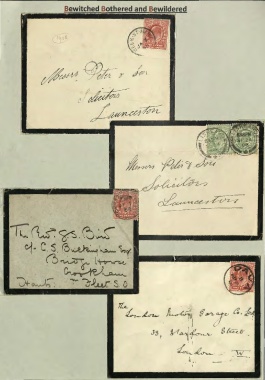 Bewitched Bothered and Bewildered
Messrs Peter & Son
Solicitors
Launceston
Messrs Peter & Sons
Solicitors
Launceston
The Rev. G.S. Bird
c/o C S Buckingham Esq
Bridge House
Crookham
Hants. Fleet S.O
The
London Motor Garage Co. Ltd
33, Wardour Street
London W